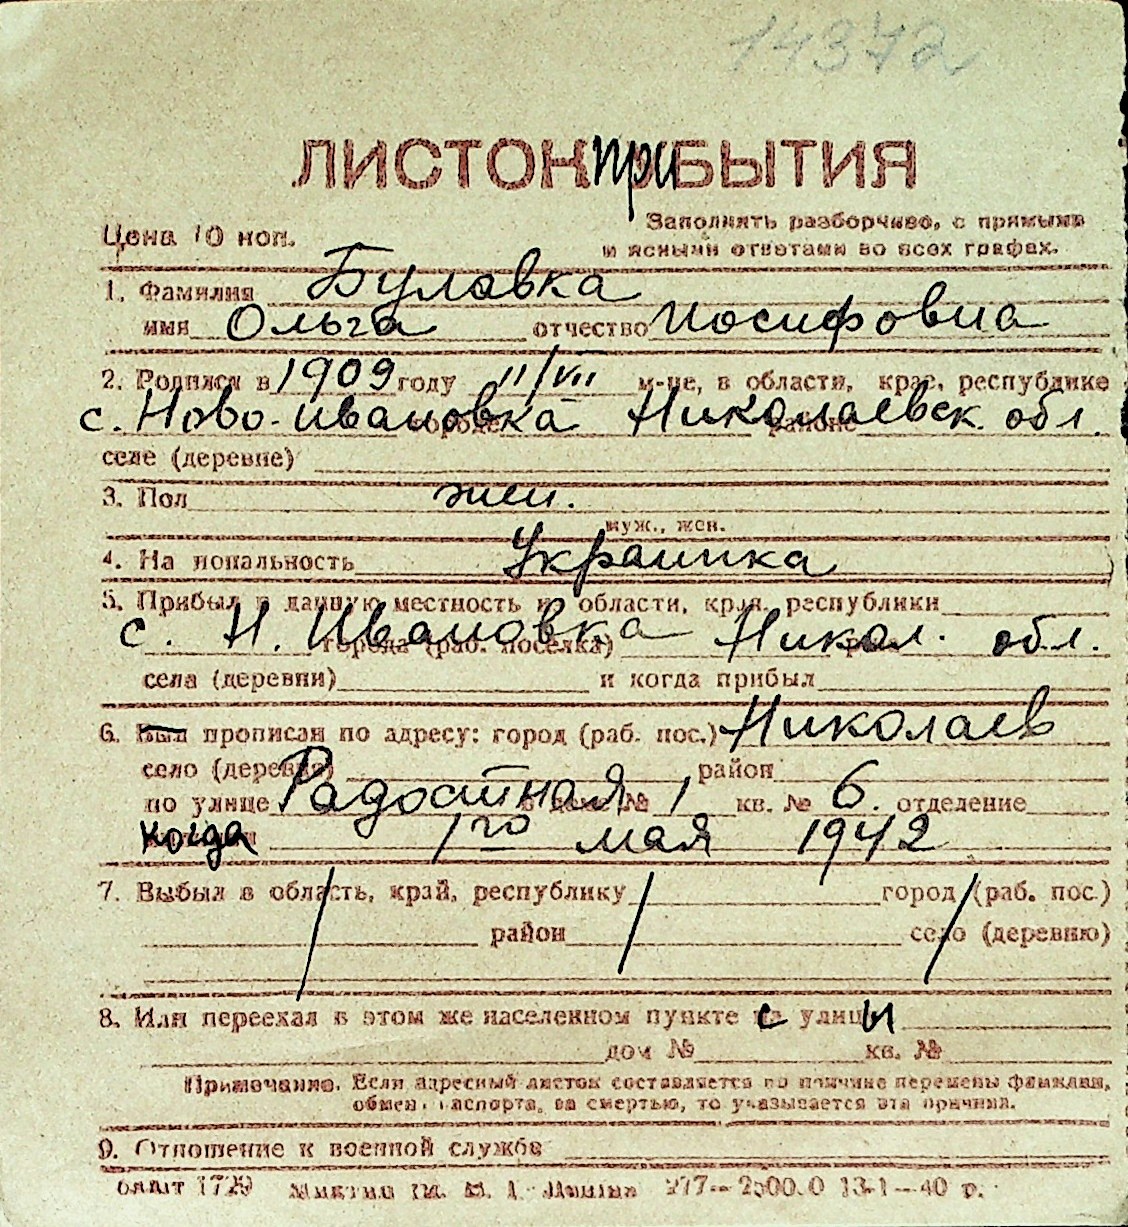 14372
ЛИСТОК ПРИБЫТИЯ
Цена 10 коп.
Заполнять разборчиво, с прямыми
и ясными ответами во всех графах.
1. Фамилия Булавка
имя Ольга отчество Иосифовна
2. Родился в 1909 году 11/VII м-це, в области, крае, республике
с. Ново-Ивановка городе Николаевск. районе обл.
селе (деревне)
3. Пол жен.
муж., жен.
4. Национальность Украинка
5. Прибыл в данную местность из области, края, республики
с. Н. Ивановка города (раб. поселка) Никол. обл.
села (деревни) и когда прибыл
6. Был прописан по адресу: город (раб. пос.) Николаев
село (деревня) район
по улице Радостная в доме № 1 кв. № 6. отделение
когда 1го мая 1942
7. Выбыл в область, край, республику город (раб. пос.)
район село (деревню)
8. Или переехал в этом же населенном пункте с улицы
дом № кв. №
Примечание. Если адресный листок составляется по причине перемены фамилии,
обмена паспорта, за смертью, то указывается эта причина.
9. Отношение к военной службе
1729 277—2500.0 13-1—40 р.